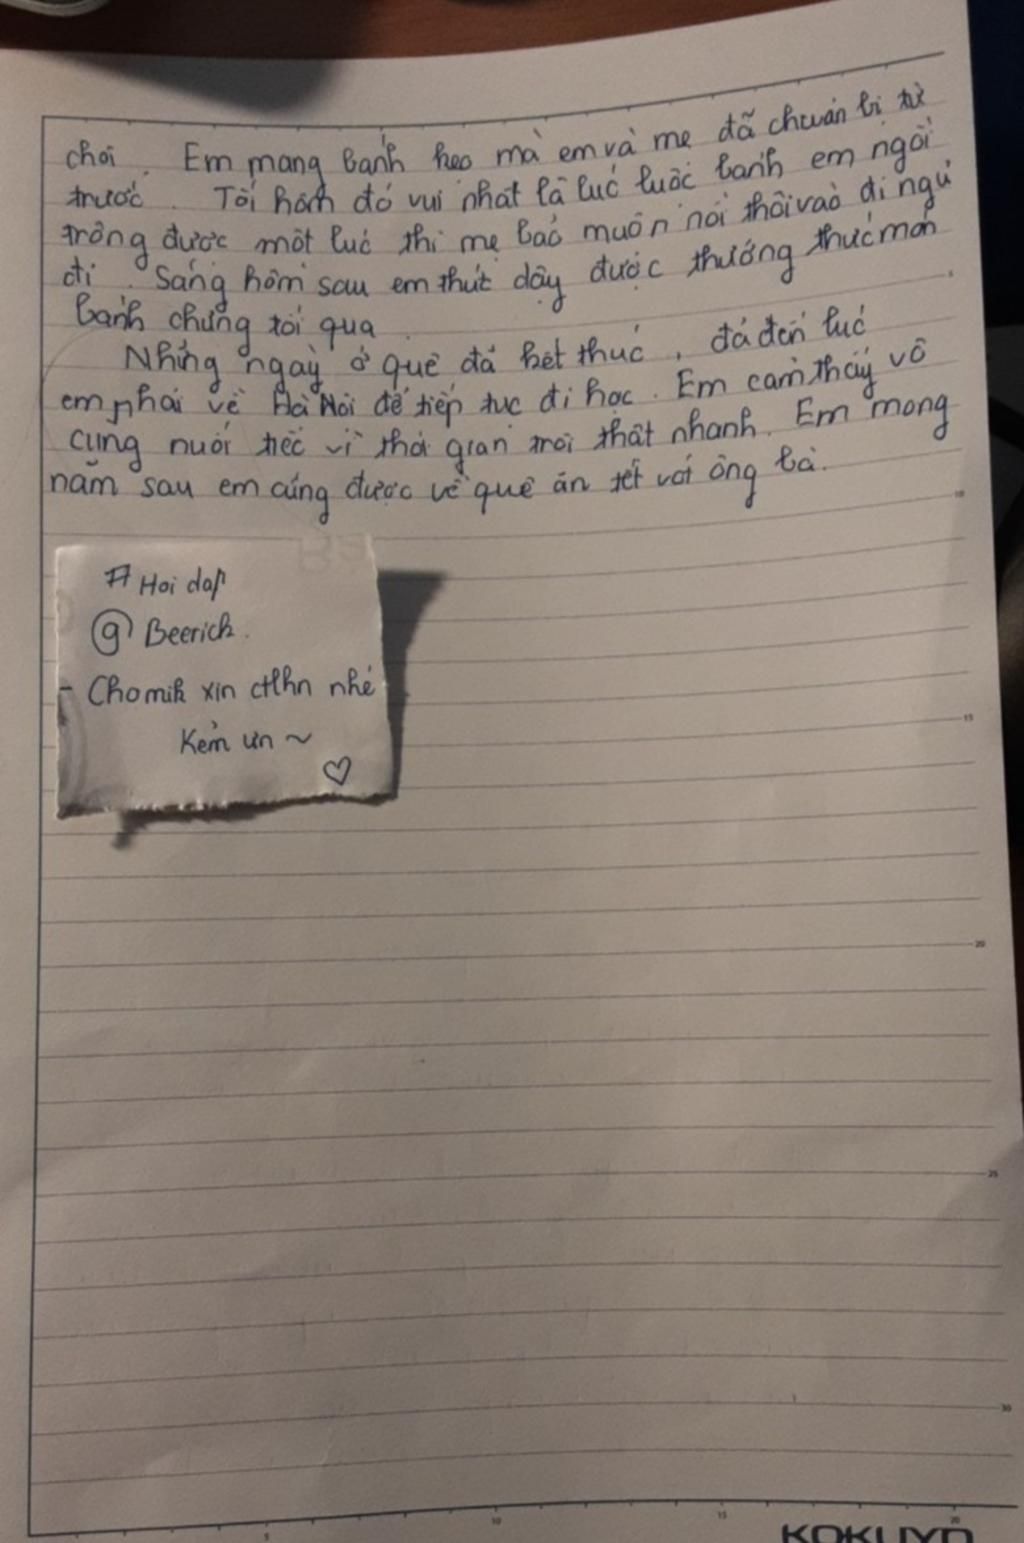 chơi. Em mang bánh kẹo mà em và mẹ đã chuẩn bị từ
trước. Tối hôm đó vui nhất là lúc luộc bánh em ngồi
trông được một lúc thì mẹ bảo muộn rồi thôi vào đi ngủ
đi. Sáng hôm sau em thức dậy được thưởng thức món
bánh chưng tối qua.
Những ngày ở quê đã hết thúc, đã đến lúc
em phải về Hà Nội để tiếp tục đi học. Em cảm thấy vô
cùng nuối tiếc vì thời gian trôi thật nhanh. Em mong
năm sau em cũng được về quê ăn tết với ông bà.
# Hoi dap
@ Beerich.
- Cho mik xin ctlhn nhé
Kẻm ưn ~
♡
5
10
15
20
25
30
5
10
15
20
KOKUYO